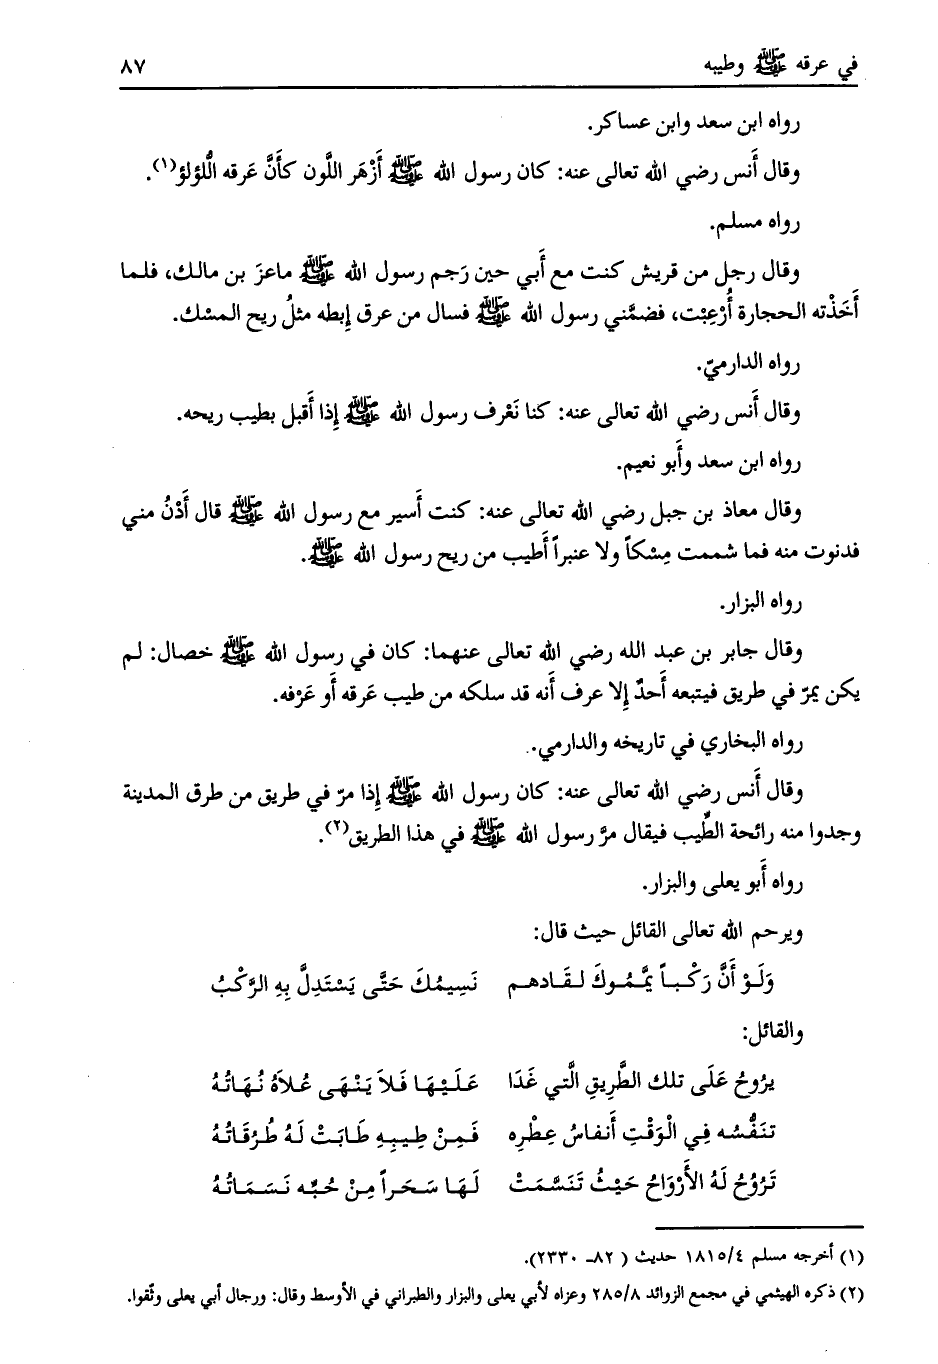 في عرقه ﷺ وطيبه ٨٧
رواه ابن سعد وابن عساكر.
وقال أَنس رضي الله تعالى عنه: كان رسول الله ﷺ أَزْهَر اللَّون كأَنَّ عَرقه اللُّؤلؤ(١).
رواه مسلم.
وقال رجل من قريش كنت مع أَبي حين رَجم رسول الله ﷺ ماعزَ بن مالك، فلما
أَخَذْته الحجارة أُرْعِبْت، فضمَّني رسول الله ﷺ فسال من عرق إِبطه مثلُ ريح المسْك.
رواه الدارميّ.
وقال أَنس رضي الله تعالى عنه: كنا نَعْرف رسول الله ﷺ إِذا أَقبل بطيب ريحه.
رواه ابن سعد وأَبو نعيم.
وقال معاذ بن جبل رضي الله تعالى عنه: كنت أَسير مع رسول الله ﷺ قال أَدْنُ مني
فدنوت منه فما شممت مِسْكاً ولا عنبراً أَطيب من ريح رسول الله ﷺ.
رواه البزار.
وقال جابر بن عبد الله رضي الله تعالى عنهما: كان في رسول الله ﷺ خصال: لم
يكن يمرّ في طريق فيتبعه أَحدٌ إِلا عرف أَنه قد سلكه من طيب عَرقه أَو عَرْفه.
رواه البخاري في تاريخه والدارمي.
وقال أَنس رضي الله تعالى عنه: كان رسول الله ﷺ إِذا مرّ في طريق من طرق المدينة
وجدوا منه رائحة الطِّيب فيقال مرَّ رسول الله ﷺ في هذا الطريق(٢).
رواه أَبو يعلى والبزار.
ويرحم الله تعالى القائل حيث قال:
وَلَوْ أَنَّ رَكْباً يَمَّمُوكَ لقَادهم نَسِيمُكَ حَتَّى يَسْتَدِلَّ بِهِ الرَّكْبُ
والقائل:
يرُوحُ عَلَى تلك الطَّرِيقِ الَّتي غَدَا عَلَيْهَا فَلاَ يَنْهَى عُلاَهُ نُهَاتُهُ
تنَفُّسُه فِي الْوَقْتِ أَنفاسُ عِطْرِه فَمِنْ طِيبِهِ طَابَتْ لَهُ طُرُقَاتُهُ
تَرُوُحُ لَهُ الأَرْوَاحُ حَيْثُ تَنَسَّمَتْ لَهَا سَحَراً مِنْ حُبِّه نَسَمَاتُهُ
(١) أخرجه مسلم ١٨١٥/٤ حديث (٨٢ـ ٢٣٣٠).
(٢) ذكره الهيثمي في مجمع الزوائد ٢٨٥/٨ وعزاه لأبي يعلى والبزار والطبراني في الأوسط وقال: ورجال أبي يعلى وثّقوا.